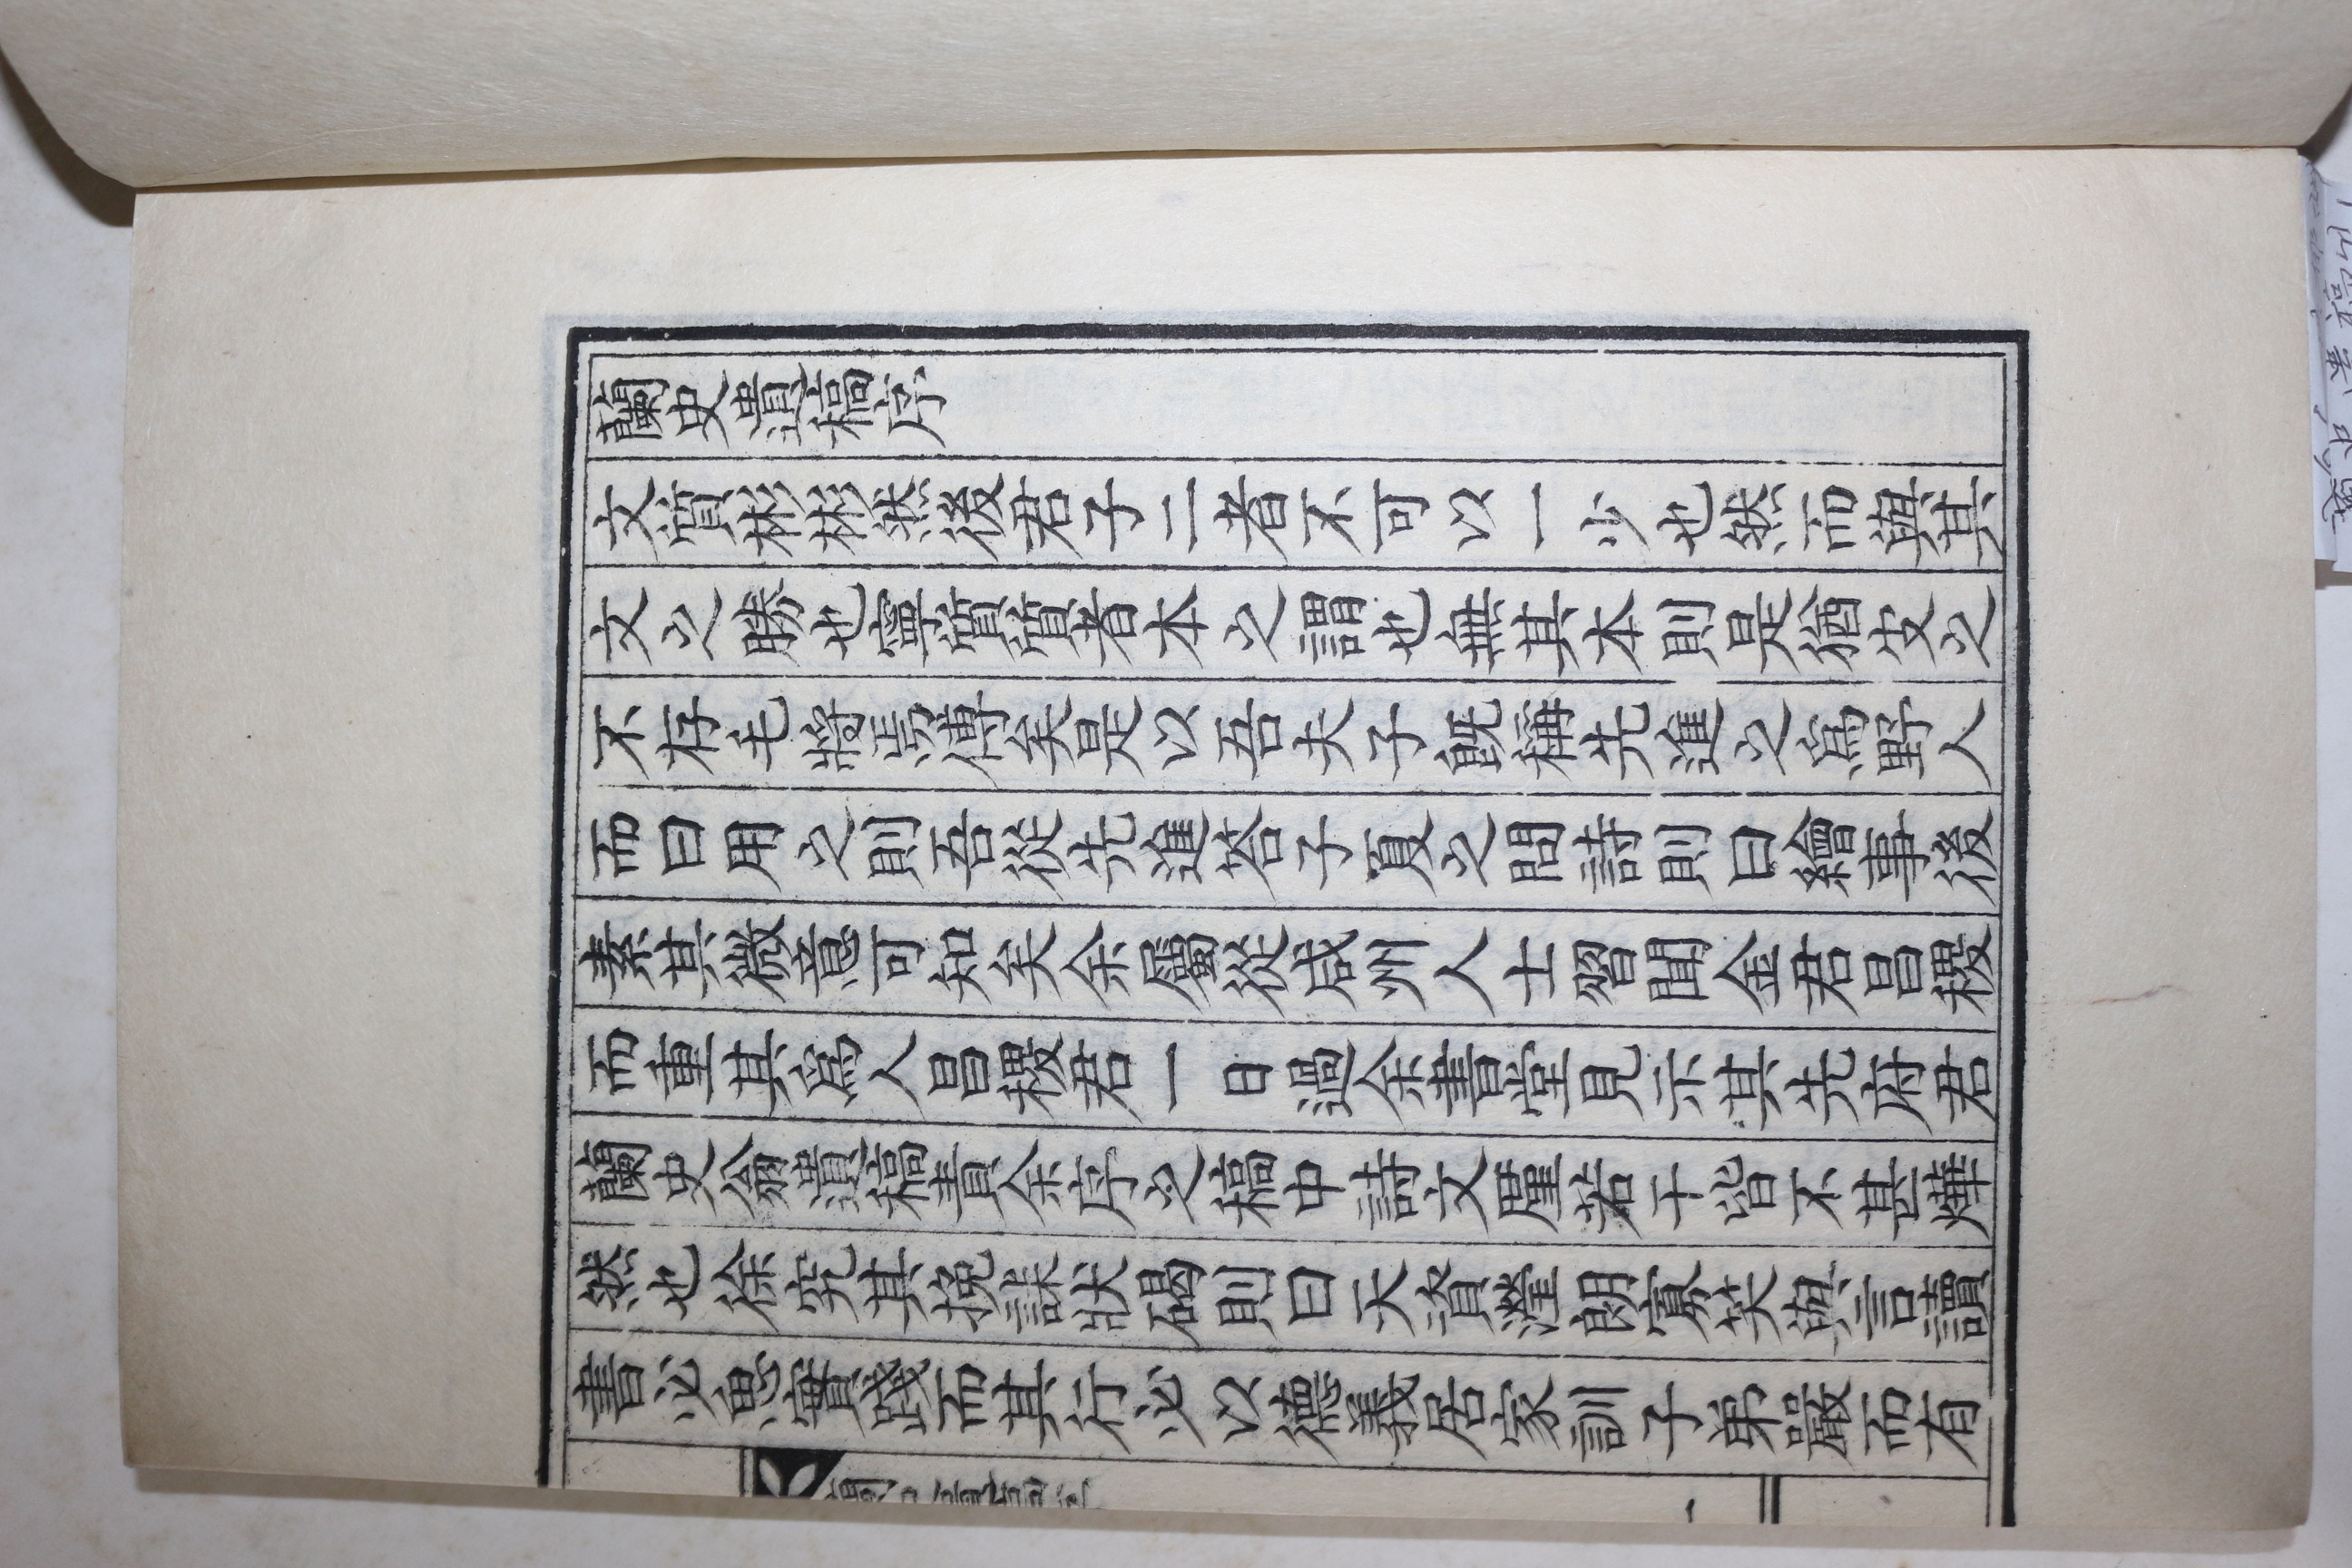 蘭史遺稿序
文質彬彬然後君子二者不可以一少也然而與其
文之勝也寧質質者本之謂也無其本則是猶皮之
不存毛將焉傅矣是以吾夫子旣稱先進之爲野人
而曰用之則吾從先進答子夏之問詩則曰繪事後
素其微意可知矣余屬從咸州人士習聞金君昌稷
而重其爲人昌稷君一日過余書堂見示其先府君
蘭史翁遺稿責余序之稿中詩文厪若干皆不甚燁
然也徐究其挽誄狀碣則曰天資瀅朗寡笑與言讀
書必思實踐而其行必以德義居家訓子弟嚴而有
一